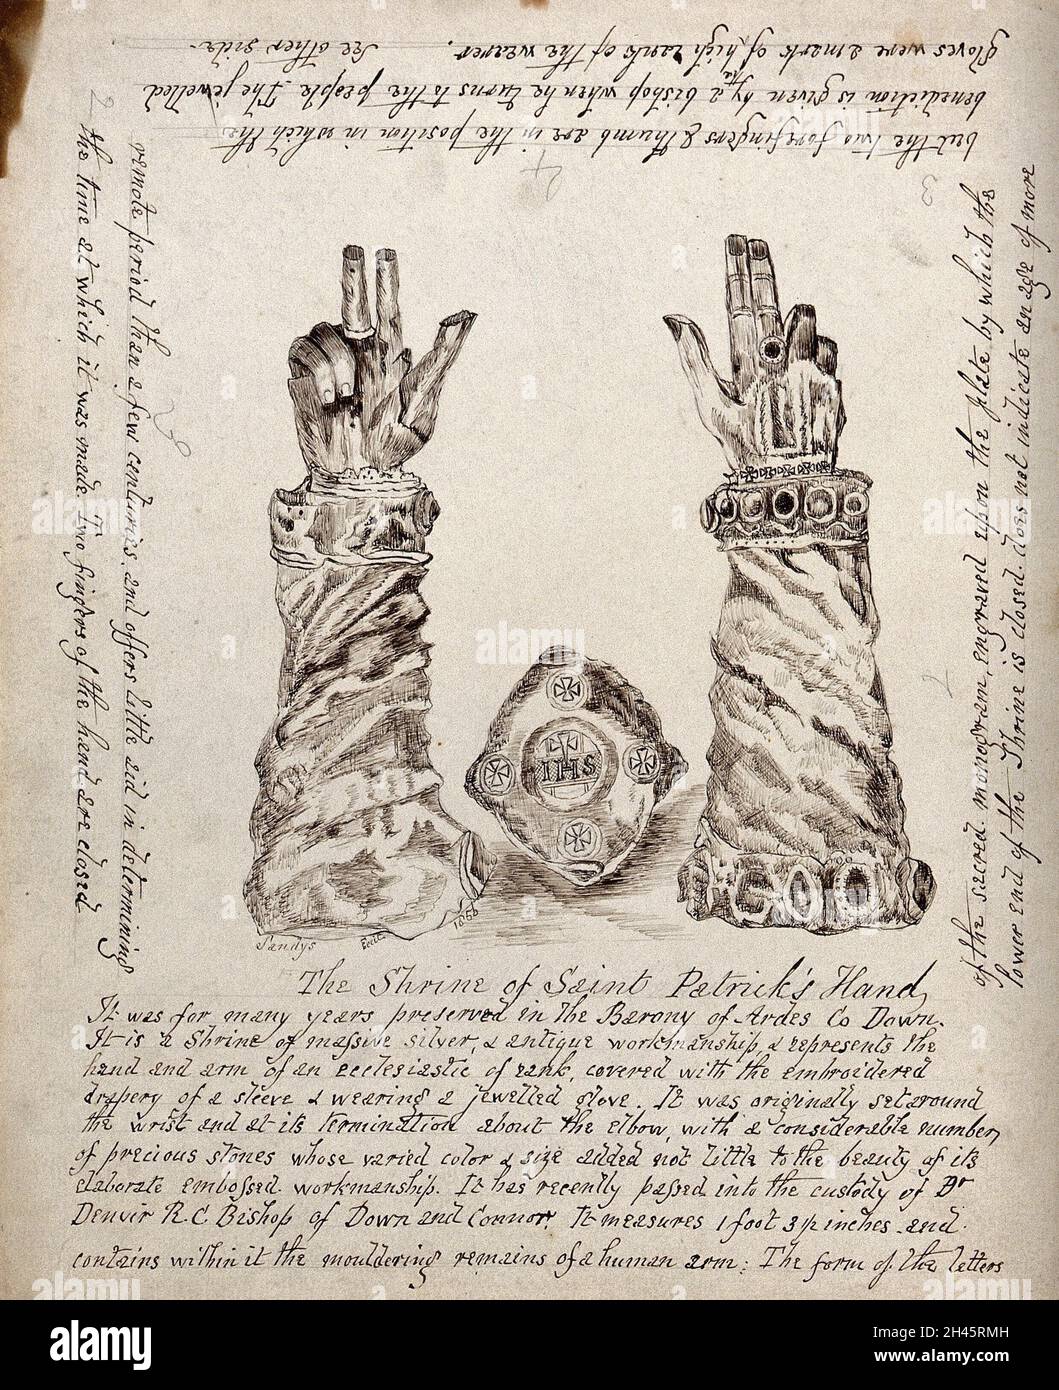 The Shrine of Saint Patrick's Hand,
It was for many years preserved in the Barony of Ardes Co Down.
It is a Shrine of massive silver, & antique workmanship, & represents the
hand and arm of an ecclesiastic of rank, covered with the embroidered
drapery of a sleeve & wearing a jewelled glove. It was originally set around
the wrist and at its termination about the elbow, with a considerable number,
of precious stones whose varied color & size added not little to the beauty of its
elaborate embossed workmanship. It has recently passed into the custody of Dr
Denvir R.C. Bishop of Down and Connor. It measures 1 foot 3½ inches and
contains within it the mouldering remains of a human arm: The form of the letters
of the sacred monogram, engraved upon the plate by which the
lower end of the Shrine is closed does not indicate an age of more
remote period than a few centuries, and offers little aid in determining
the time at which it was made. Two fingers of the hand are closed
but the two forefingers & thumb are in the position in which the
benediction is given by a bishop when he turns to the people. The jewelled
gloves were a mark of high rank of the wearer. See other side.
2
3
4
IHS
Sandys
fecit
1856
alamy
a
Image ID: 2H45RMH
www.alamy.com